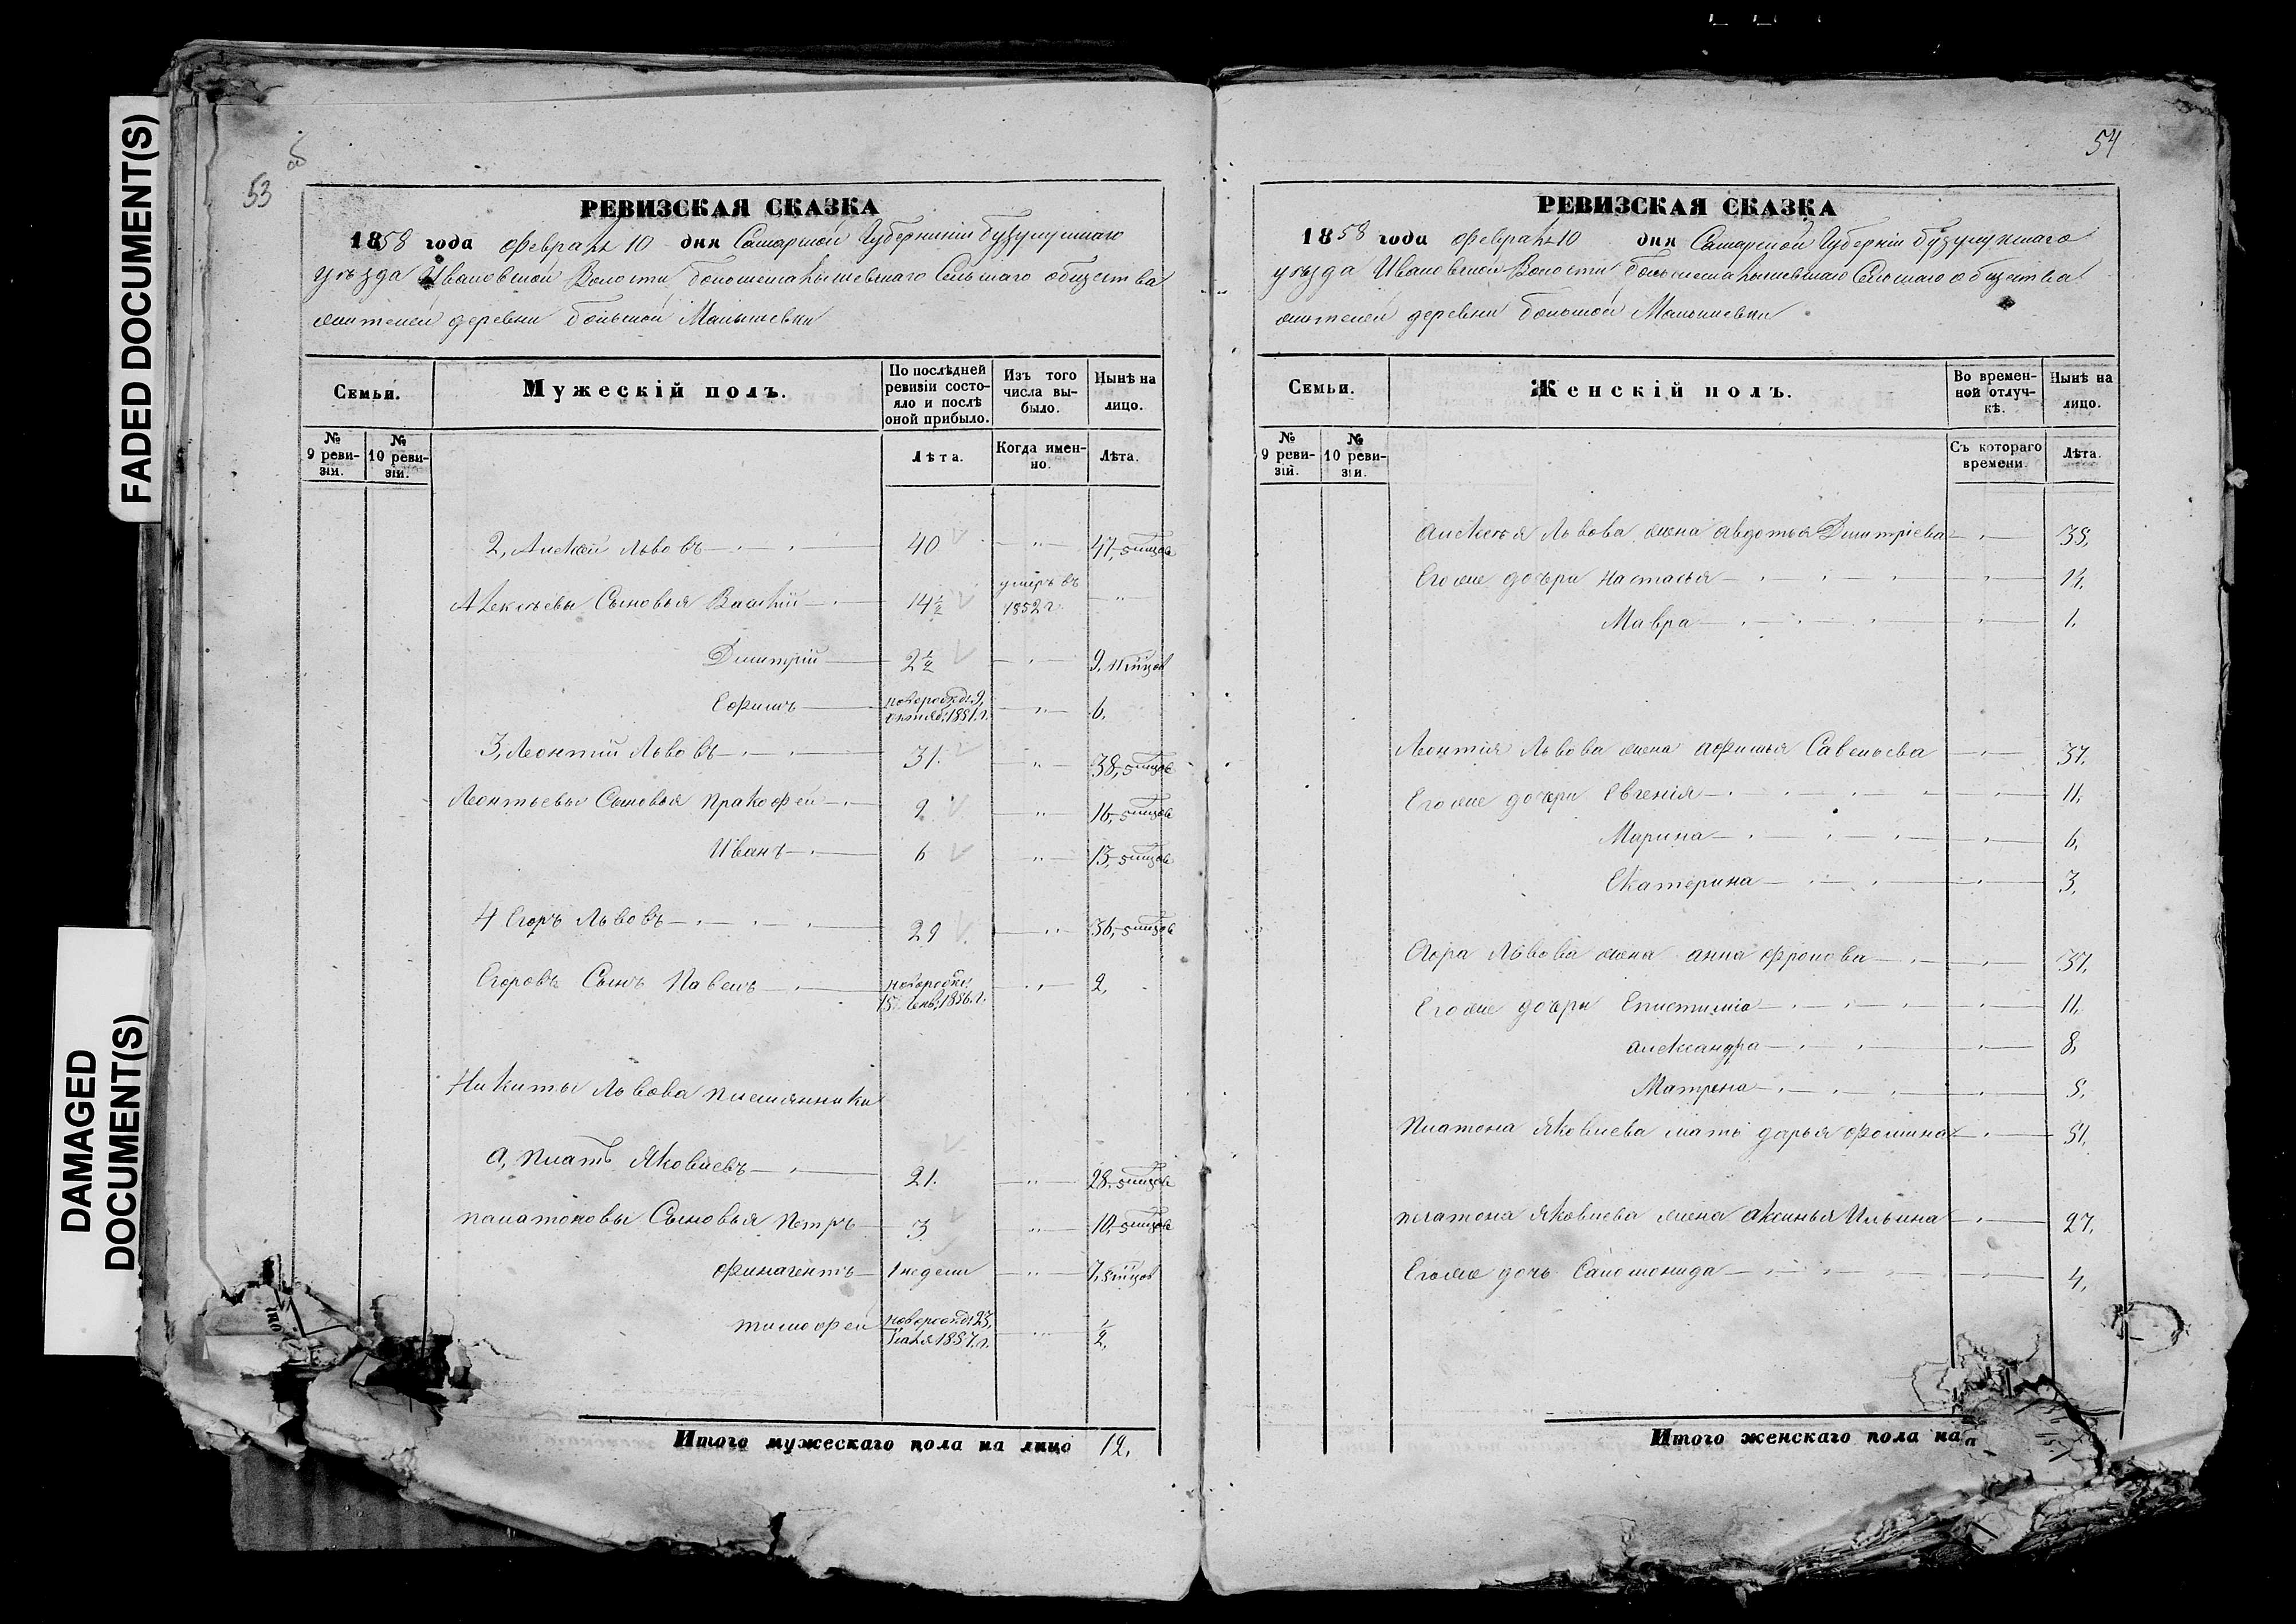 FADED DOCUMENT(S)
DAMAGED
DOCUMENT(S)
53
об
РЕВИЗСКАЯ СКАЗКА
1858 года февраля 10 дня Самарской Губернии Бузулукскаго
уѣзда Ивановской Волости Большемалышевскаго Сельскаго общества
жителей деревни Большой Малышевки
Семьи.
Мужескій полъ.
По послѣдней ревизіи состояло и послѣ оной прибыло.
Изъ того числа выбыло.
Нынѣ на лицо.
№ 9 ревизіи.
№ 10 ревизіи.
Лѣта.
Когда именно.
Лѣта.
2, Алексѣй Львовъ 40 " 47
Алексѣевы Сыновья Василій 14½ умеръ въ 1852 г. "
Дмитрій 2½ " 9
Ефимъ новорожд: 9 октяб: 1851 г. " 6.
3, Леонтій Львовъ 31. " 38
Леонтьевы Сыновья Пракофей 9 " 16
Иванъ 6 " 13
4 Егоръ Львовъ 29 " 36
Егоровъ Сынъ Павелъ новорожд: 15 Генв: 1856 г. " 2,
Никиты Львова племянники
а, Платъ Яковлевъ 21. " 28
Палатоновы Сыновья Петръ 3 " 10
Финагентъ 1 недели " 7
Тимофей новорожд: 23 1857 г. " ½
Итого мужескаго пола на лицо 12.
54
РЕВИЗСКАЯ СКАЗКА
1858 года февраля 10 дня Самарской Губерніи Бузулукскаго
уѣзда Ивановской Волости Большемалышевскаго Сельскаго общества
жителей деревни Большой Малышевки
Семьи.
Женскій полъ.
Во временной отлучкѣ.
Нынѣ на лицо.
№ 9 ревизіи.
№ 10 ревизіи.
Съ котораго времени.
Лѣта.
Алексѣя Львова жена Авдотья Дмитріева
Его же дочери Настасья
Мавра 1.
Леонтія Львова жена Афимья Савельева 37,
Его же дочери Евгенія 11,
Марина 6,
Екатерина 3,
Егора Львова жена Анна Фролова 37,
Его же дочери Епистимія 11,
Александра 8,
Матрена 5,
Платона Яковлева мать Дарья Фомина 51,
Платона Яковлева жена Аксинья Ильина 27,
Его же дочь Саломонида 4,
Итого женскаго пола на